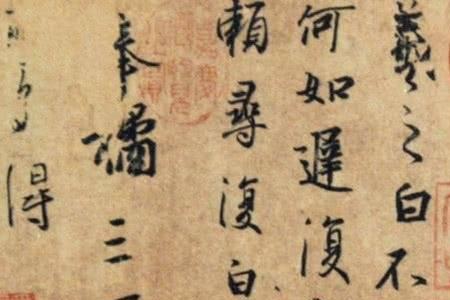 羲之白不
何如遲復
賴尋復白
奉橘三
得